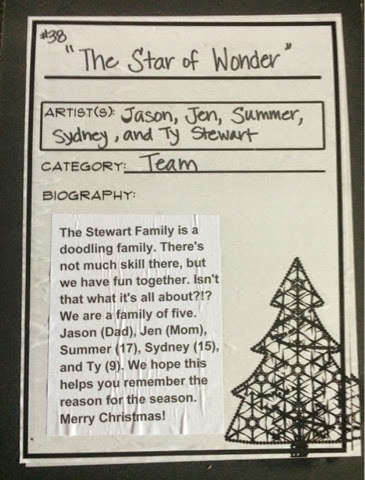 #38
"The Star of Wonder"
ARTIST(S): Jason, Jen, Summer,
Sydney, and Ty Stewart
CATEGORY: Team
BIOGRAPHY:
The Stewart Family is a
doodling family. There's
not much skill there, but
we have fun together. Isn't
that what it's all about?!?
We are a family of five.
Jason (Dad), Jen (Mom),
Summer (17), Sydney (15),
and Ty (9). We hope this
helps you remember the
reason for the season.
Merry Christmas!